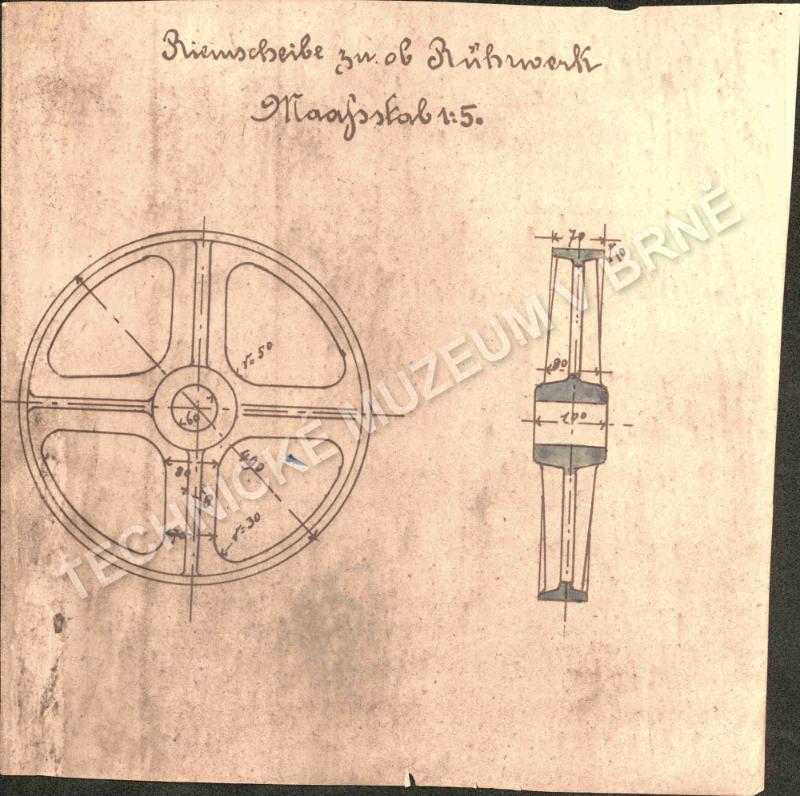 Riemscheibe zu. ob Rührwerk
Maaſsstab 1:5.
70
10
r=50
80
60
100
400
80
8
70
r=30
TECHNICKÉ MUZEUM V BRNĚ